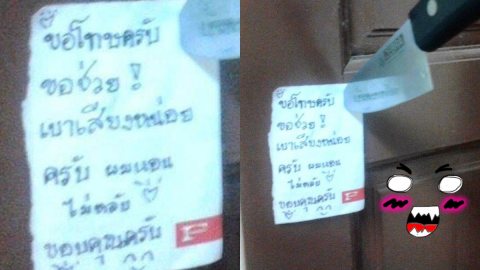 ขอโทษครับ
ขอช่วย !
เบาเสียงหน่อย
ครับ ผมนอน
ไม่หลับ
ขอบคุณครับ
ขอโทษครับ
ขอช่วย !
เบาเสียงหน่อย
ครับ ผมนอน
ไม่หลับ
ขอบคุณครับ